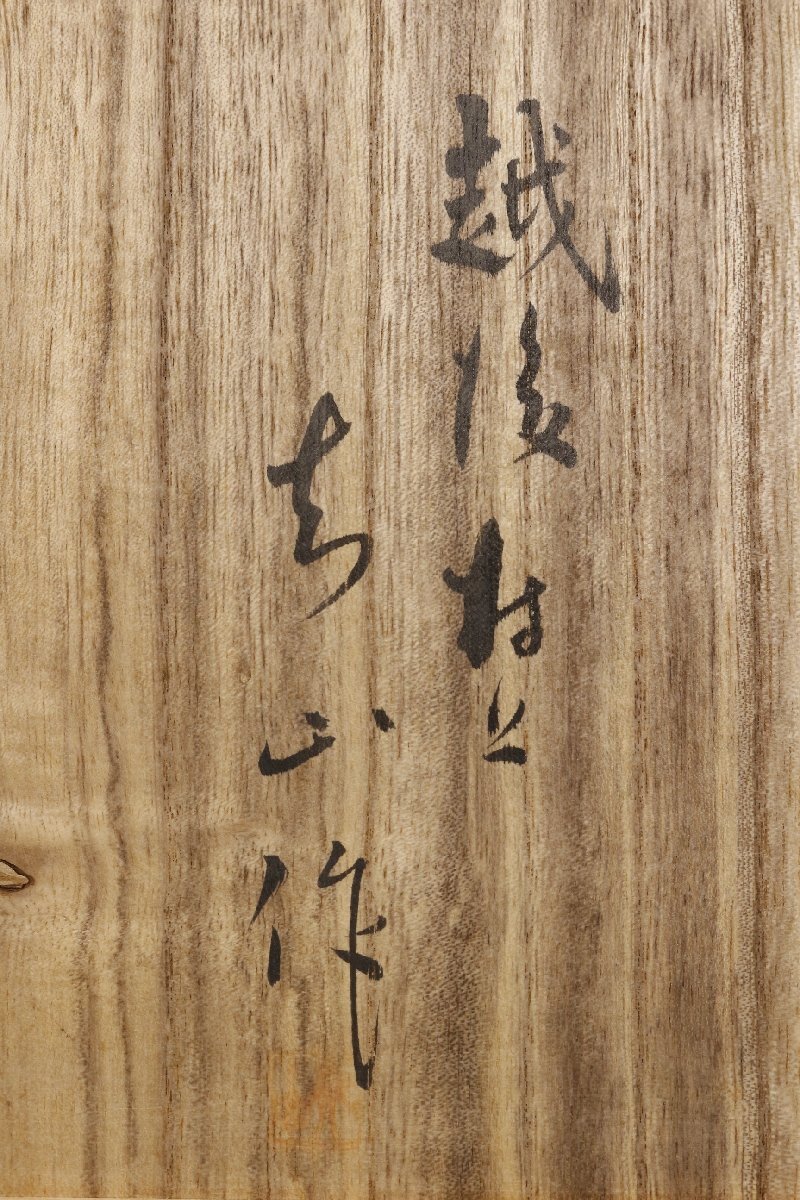 越後村上
山作